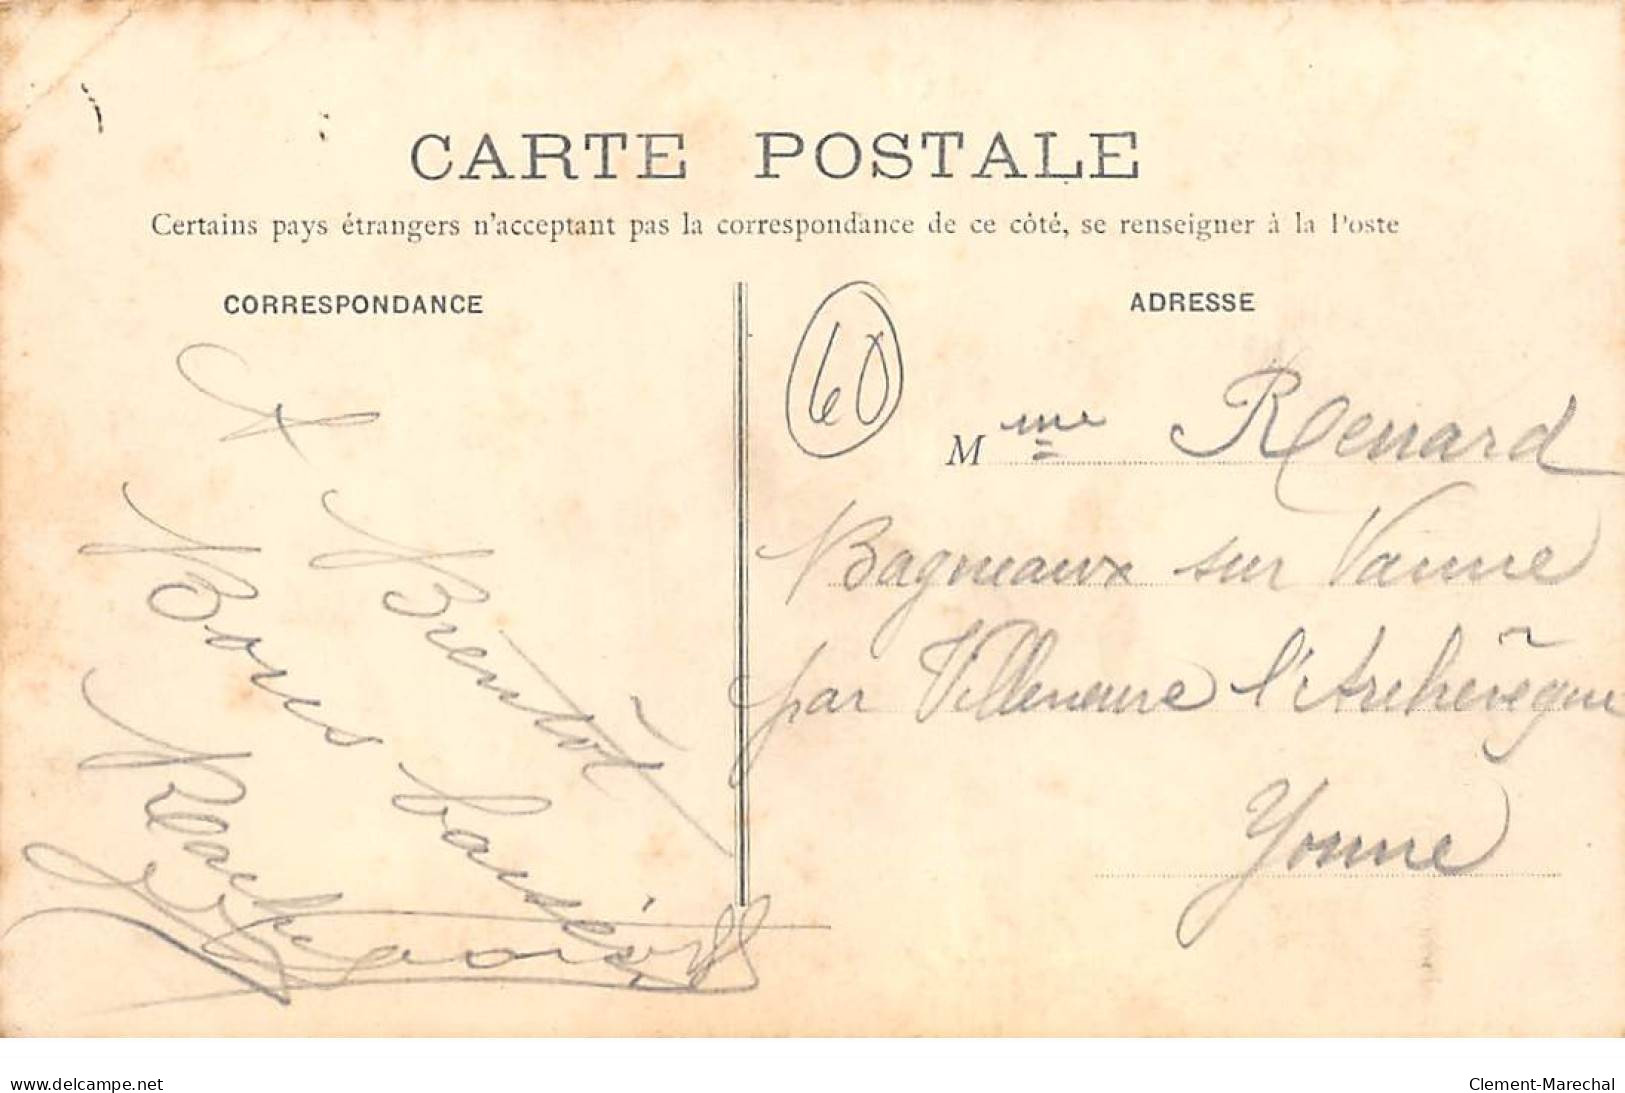 CARTE POSTALE
Certains pays étrangers n'acceptant pas la correspondance de ce côté, se renseigner à la Poste
CORRESPONDANCE
A Bientôt
Bons baisers
ADRESSE
60
Mme Renard
Bagneaux sur Vanne
par Villeneuve l'Archevêque
Yonne
www.delcampe.net
Clement-Marechal